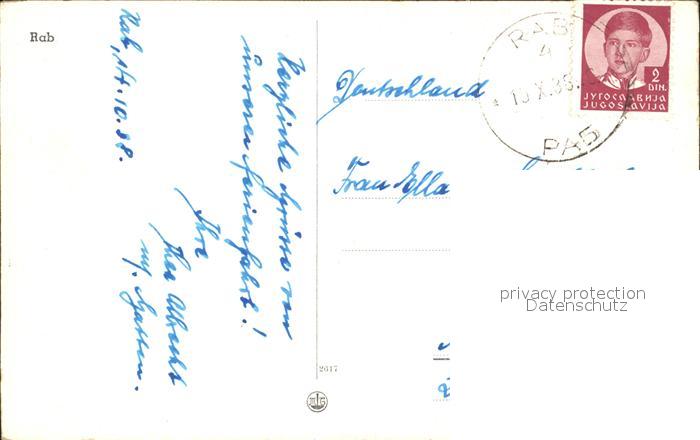 Rab
Rab, 14.10.38.
Herzliche Grüsse von
unserer Ferienfahrt!
Ihre
Thea Albrecht
u. Gatten.
Deutschland
Frau Ella
RAB
4
РАБ
2
DIN.
ЈУГОСЛАВИЈА
JUGOSLAVIJA
2617
privacy protection
Datenschutz